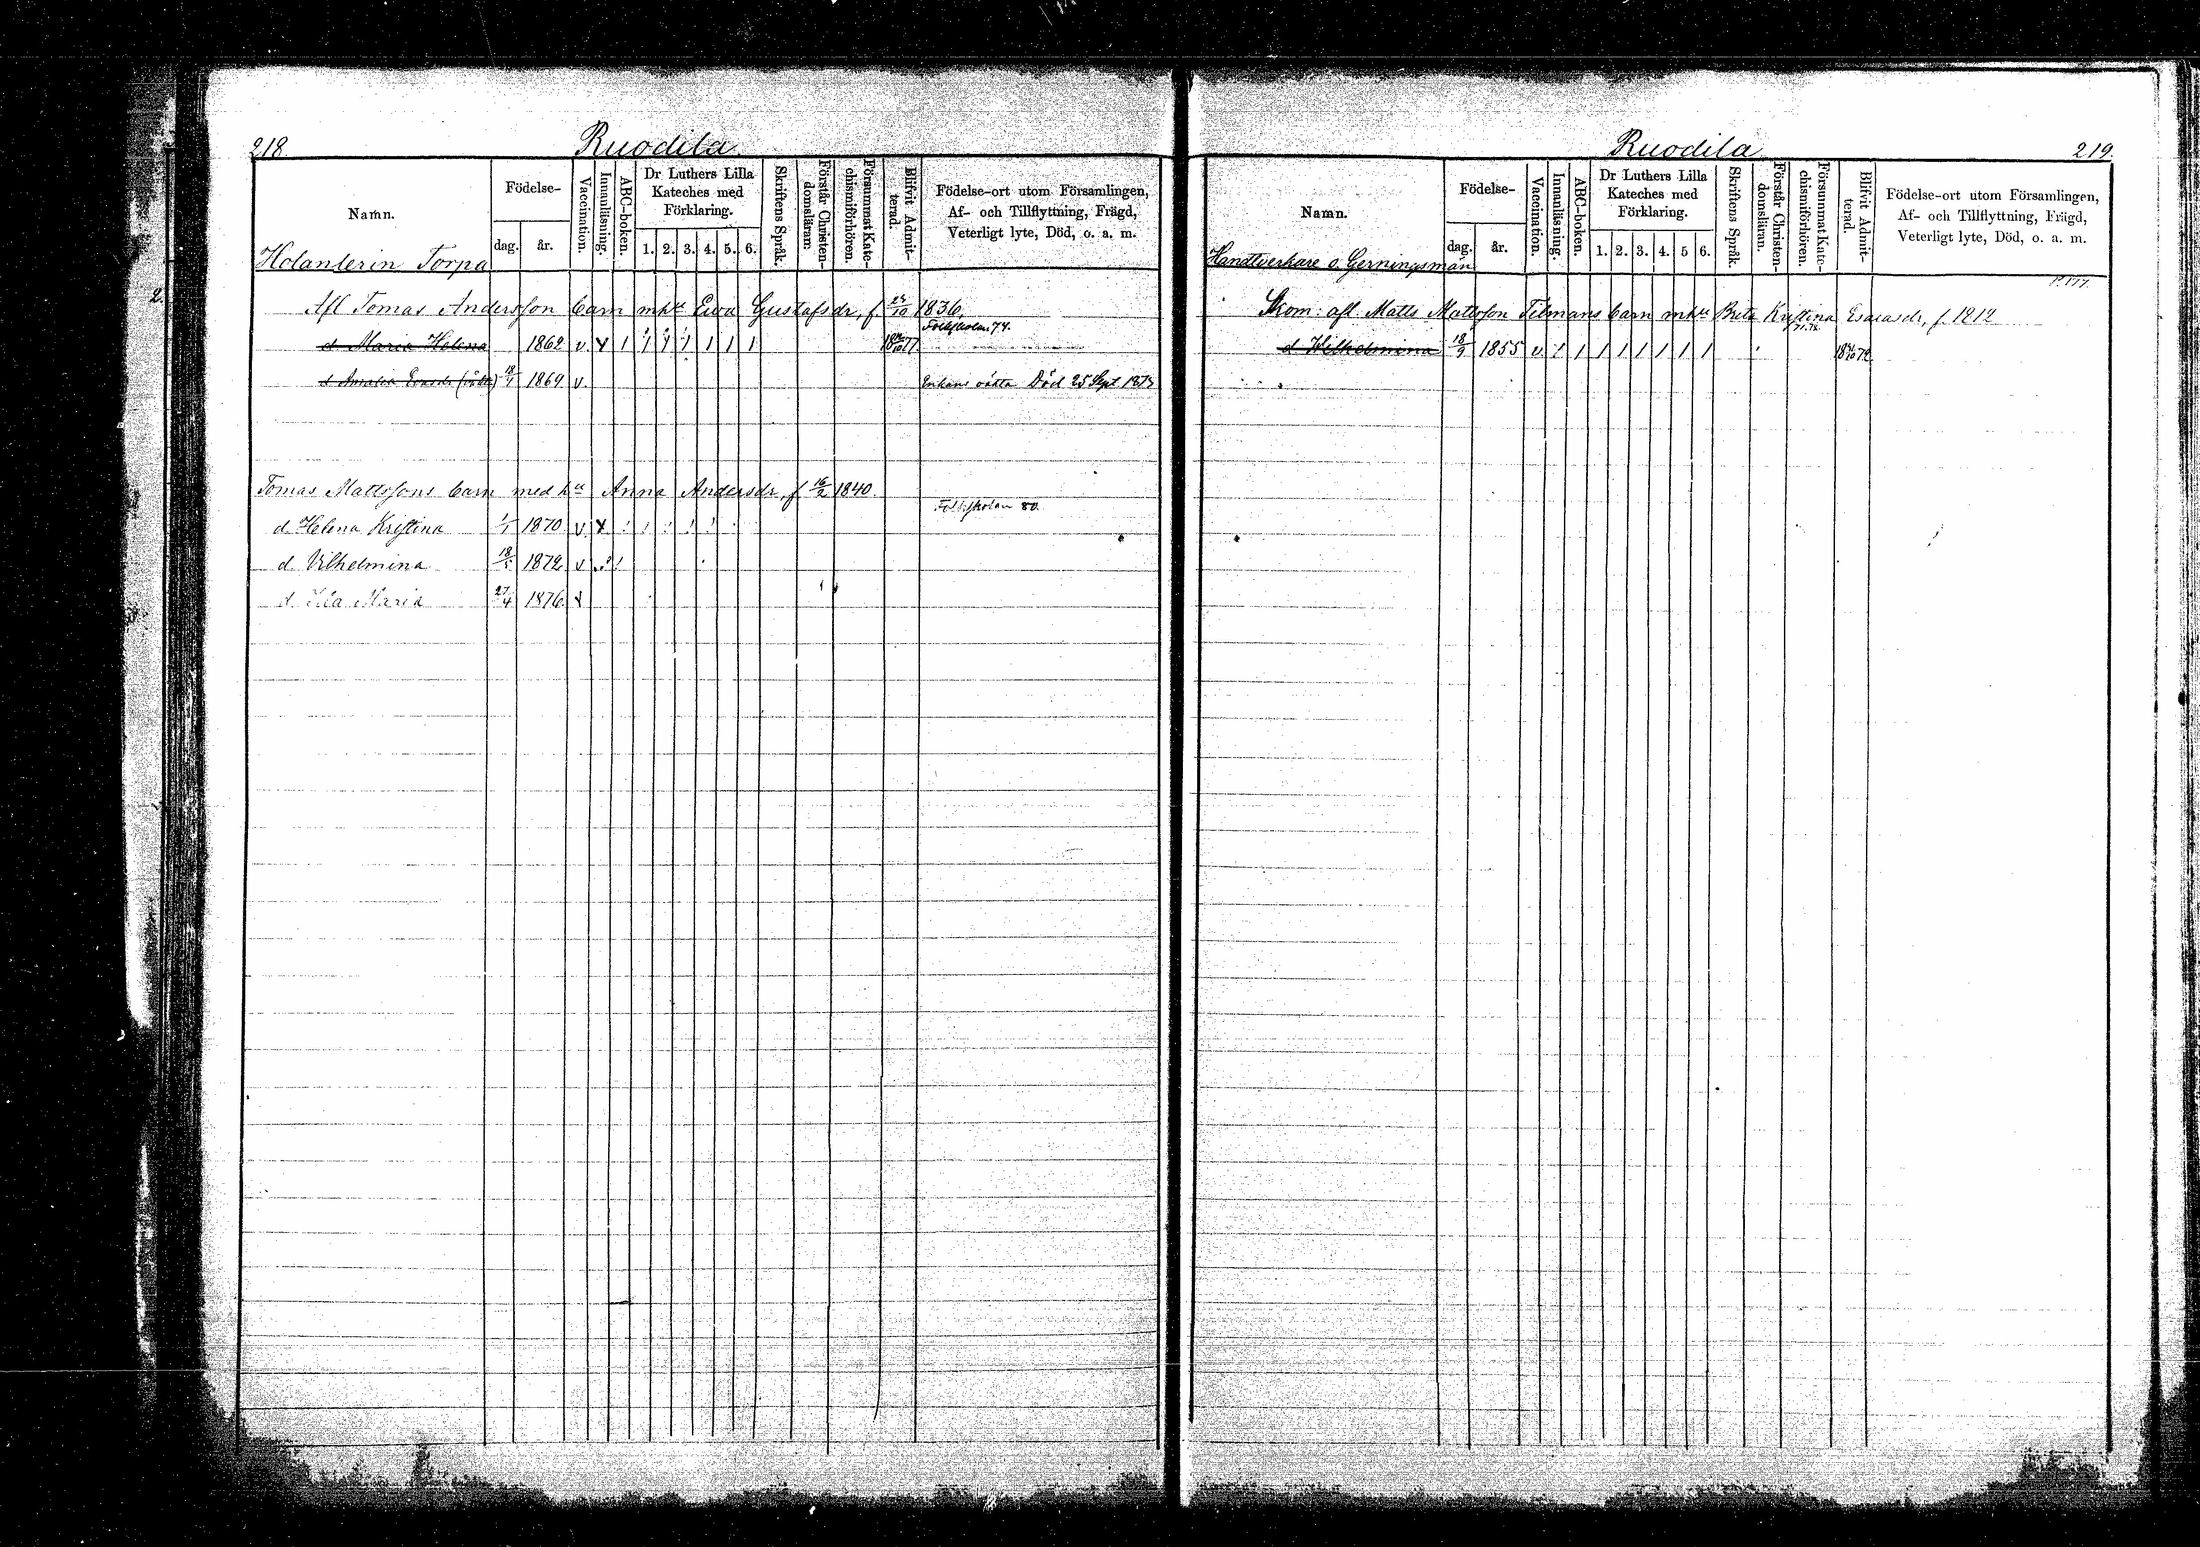 218
Ruodila
Namn.
Födelse-
dag.
år.
Vaccination.
Innanläsning.
ABC-boken.
Dr Luthers Lilla
Kateches med
Förklaring.
1. 2. 3. 4. 5. 6.
Skriftens Språk.
Förstår Christen-
domsläran.
Försummat Kate-
chismiförhören.
Blifvit Admit-
terad.
Födelse-ort utom Församlingen,
Af- och Tillflyttning, Frägd,
Veterligt lyte, Död, o. a. m.
Holanterin Torpa
2.
Afl Tomas Andersson barn mhu Ewa Gustafsdr, f. 24/10 1836.
Folkskolan 74.
d Maria Helena 1862 v Y 1 1 1 1 1 1 1
d Amalia Evasdr 18/1 1869 v Enkans oäkta Död 25 Sept 1873
Tomas Mattssons barn med hu Anna Andersdr, f 16/2 1840.
Folkskolan 80.
d Helena Kristina 1/1 1870 v Y
d Vilhelmina 1872 v
d. Ida Maria 27/4 1876
Ruodila
219
Namn.
Födelse-
dag.
år.
Vaccination.
Innanläsning.
ABC-boken.
Dr Luthers Lilla
Kateches med
Förklaring.
1. 2. 3. 4. 5 6.
Skriftens Språk.
Förstår Christen-
domsläran.
Försummat Kate-
chismiförhören.
Blifvit Admit-
terad.
Födelse-ort utom Församlingen,
Af- och Tillflyttning, Frägd,
Veterligt lyte, Död, o. a. m.
Handtverkare o. Gerningsmän
Skom: afl. Matts Mattsson Tilmans barn mhu Brita Kristina Esaiasdr, f. 1812
d Wilhelmina 18/9 1855 v 1 1 1 1 1 1 1 1